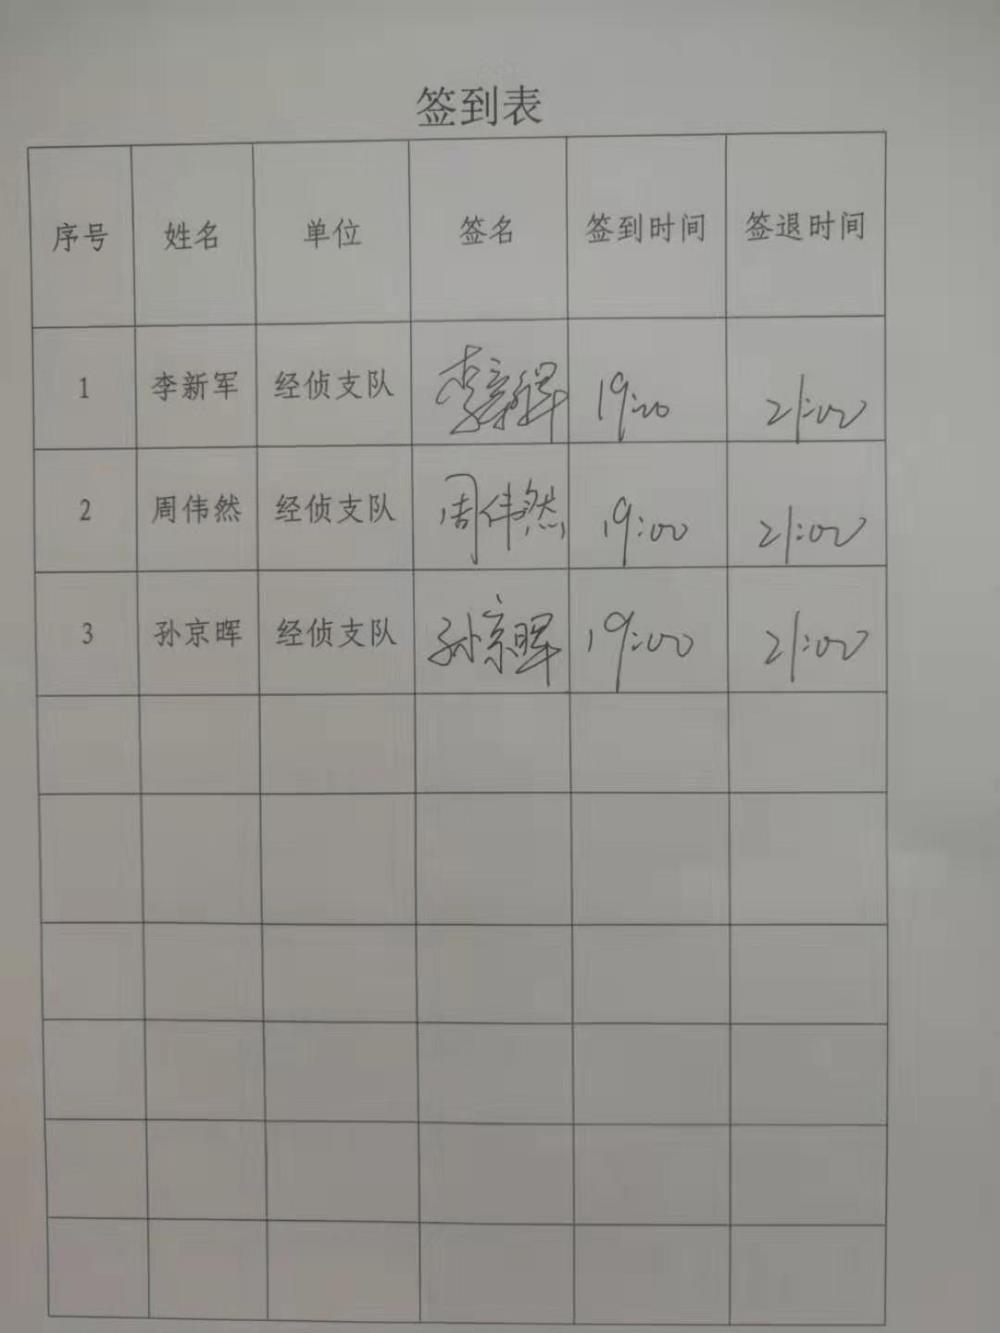 签到表
序号 姓名 单位 签名 签到时间 签退时间
1 李新军 经侦支队 李新军 19:00 21:00
2 周伟然 经侦支队 周伟然 19:00 21:00
3 孙京晖 经侦支队 孙京晖 19:00 21:00